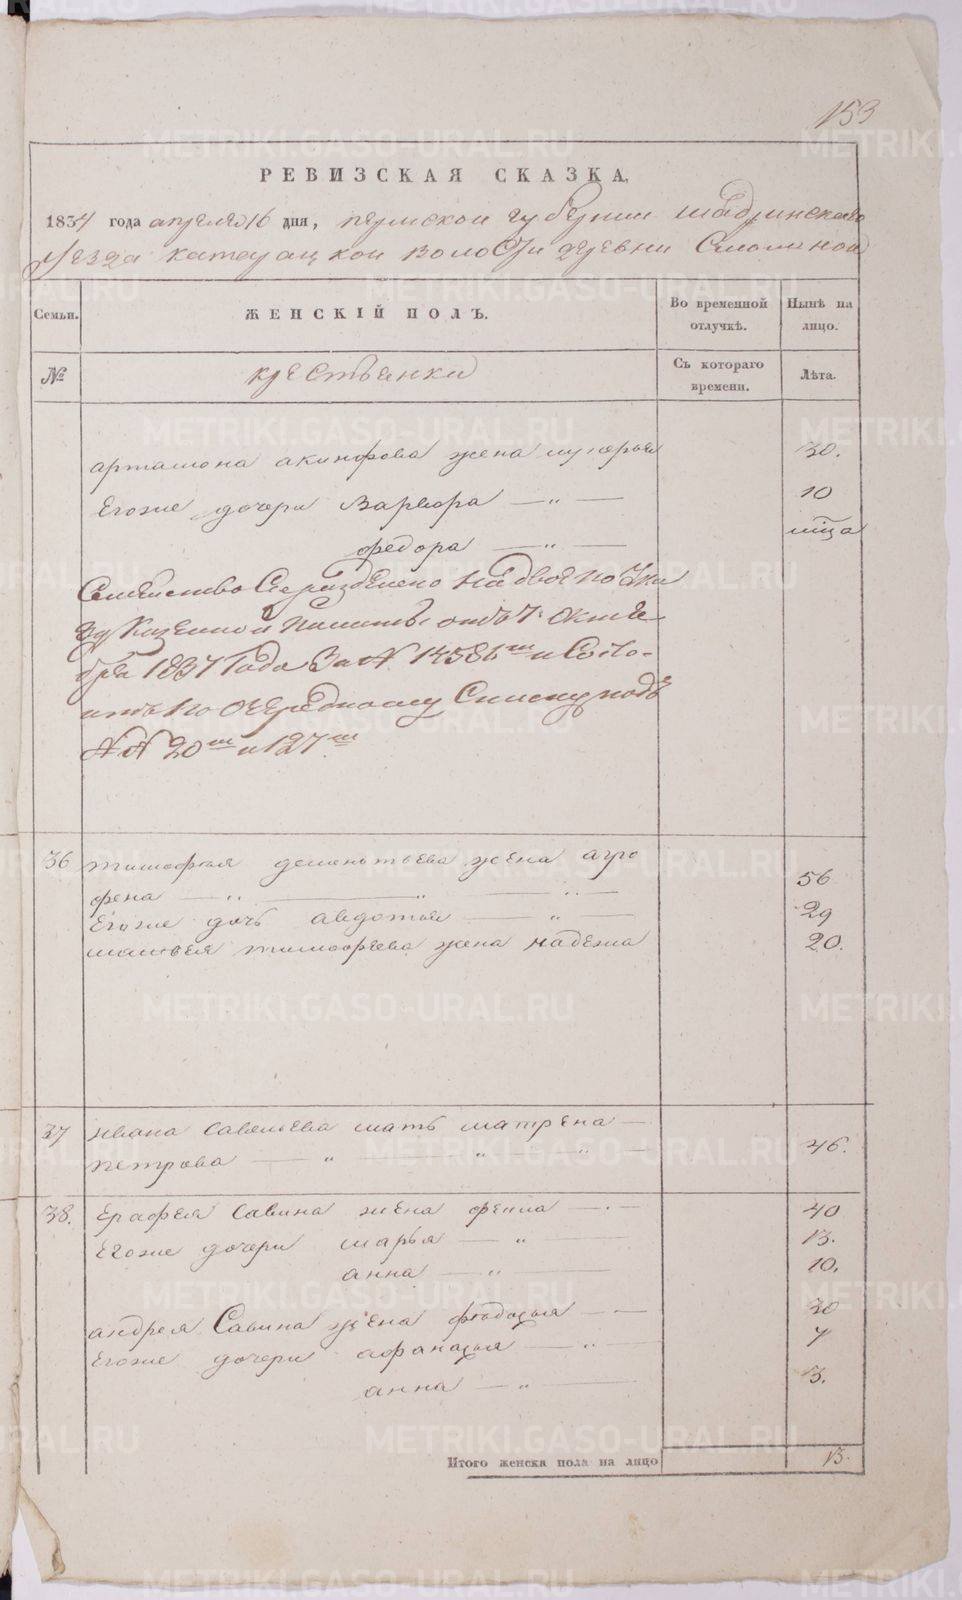 153
РЕВИЗСКАЯ СКАЗКА,
1834 года апреля 16 дня, пермской губернии шадринскаго
уезда катауацкой волости деревни Смолиной
Семьи. ЖЕНСКІЙ ПОЛЪ. Во временной отлучкѣ. Нынѣ на лицо.
№ крестьянки Съ котораго времени. Лѣта.
артамона акинфова жена 30.
Егоже дочери Варвора — „ — 10
федора — „ —
Семейство Сие разделено На двое по Ука
зу Казенной Палаты отъ 7. Октя-
бря 1837 Года За № 14586м и Состо-
итъ по очередному Списку подъ
№№ 20м и 127м
36 тимофея дементьева жена агро
фена — „ — „ — „ — 56
Егоже дочь авдотья — „ — 29
матвея тимофеева жена надежа 20.
37 ивана савельева мать матрена —
петрова — „ — „ — „ — 46.
38. Ерафея Савина жена фекла — „ — 40
Егоже дочери марья — „ — 13.
анна — „ — 10.
андрея Савина жена фѣодосья — „ — 30
Егоже дочери афанасья — „ — 7
анна — „ — 3.
Итого женска пола на лицо 13.
METRIKI.GASO-URAL.RU